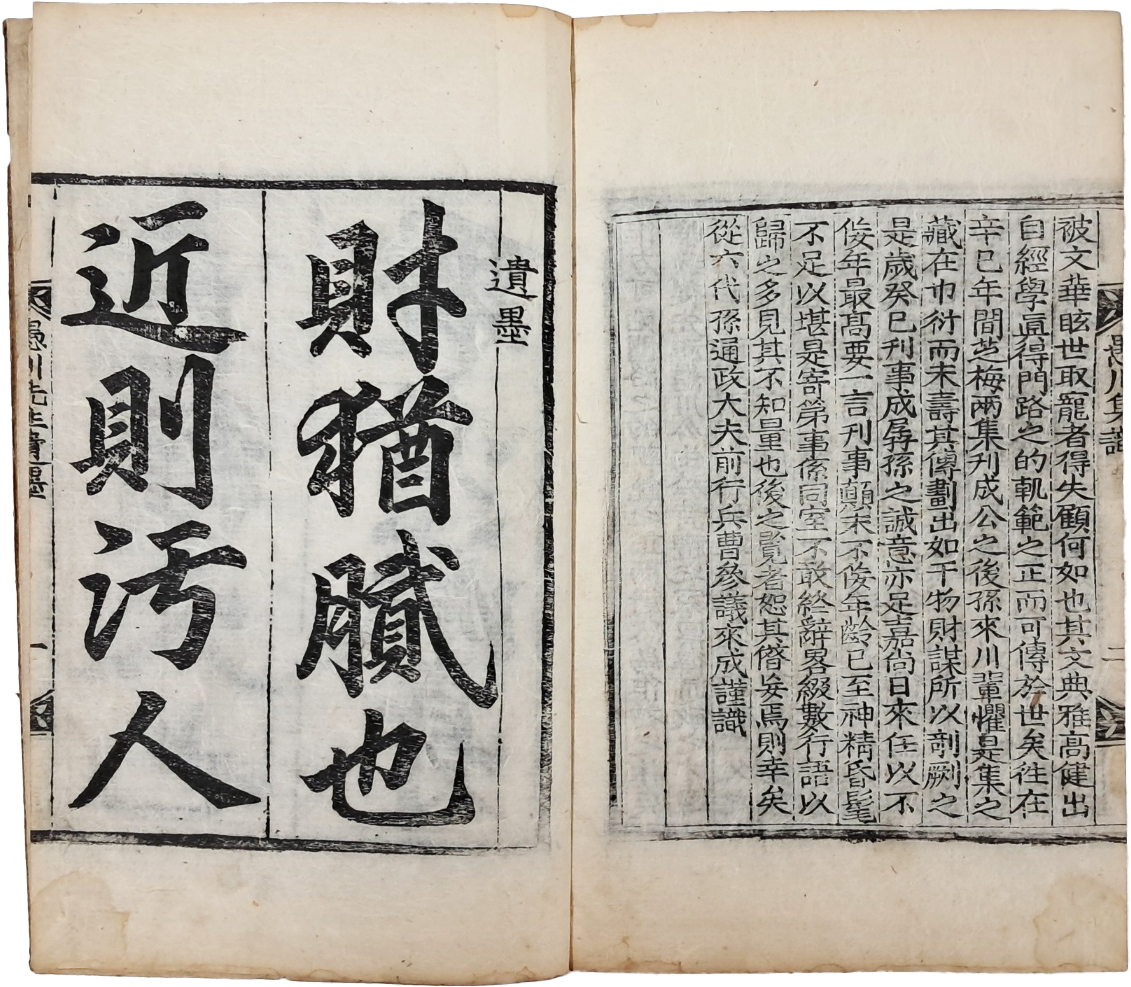 愚川集識
二
被文華眩世取寵者得失顧何如也其文典雅高健出
自經學眞得門路之的軌範之正而可傳於世矣往在
辛巳年間芝梅兩集刊成公之後孫來川輩懼是集之
藏在巾衍而未壽其傳劃出如干物財謀所以剞劂之
是歲癸巳刊事成孱孫之誠意亦足嘉尙日來任以不
佞年最高要一言刊事顚末不佞年齡已至神精昏髦
不足以堪是寄第事係同室不敢終辭畧綴數行語以
歸之多見其不知量也後之覽者恕其僭妄焉則幸矣
從六代孫通政大夫前行兵曹參議來成謹識
遺墨
財猶膩也
近則汚人
愚川先生遺墨
一